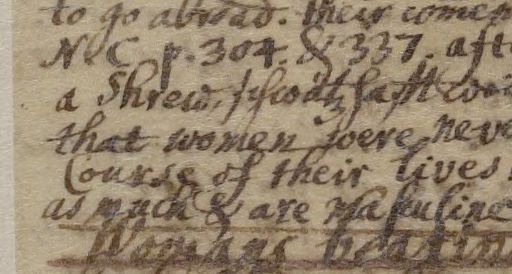 to go abroad. their
N. C. p. 304. & 337. aft
a Shrew,
that women were nev
Course of their lives
as much & are Masculine
Womans